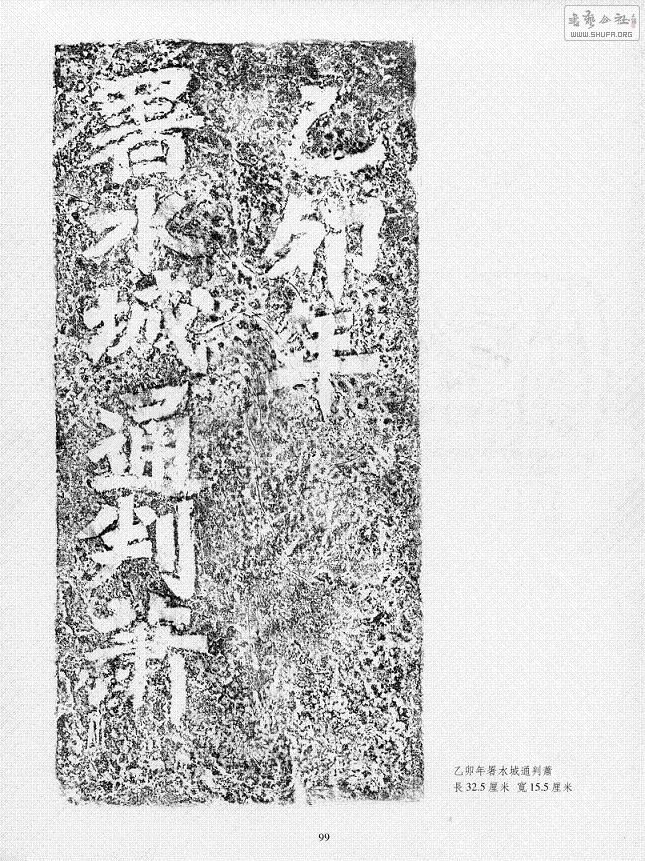 乙卯年
署水城通判蕭
乙卯年署水城通判蕭
長 32.5 厘米 寬 15.5 厘米
99
書藝公社
WWW.SHUFA.ORG